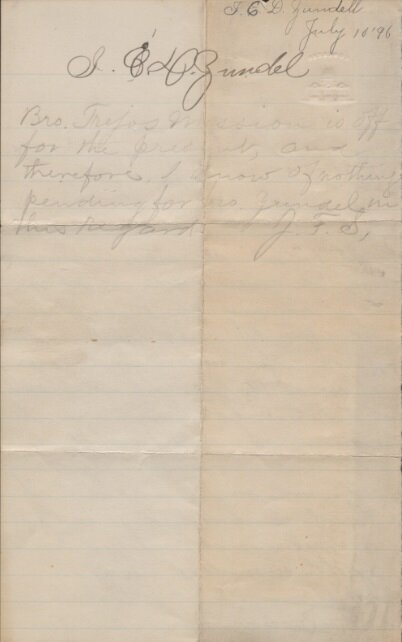 I. E. D. Zundell
July 10 '96
I. E. D. Zundel
Bro. Trejos Mission is off
for the present, and
therefore I know of nothing
pending for Bro. Zundel in
this regard. J. F. S.